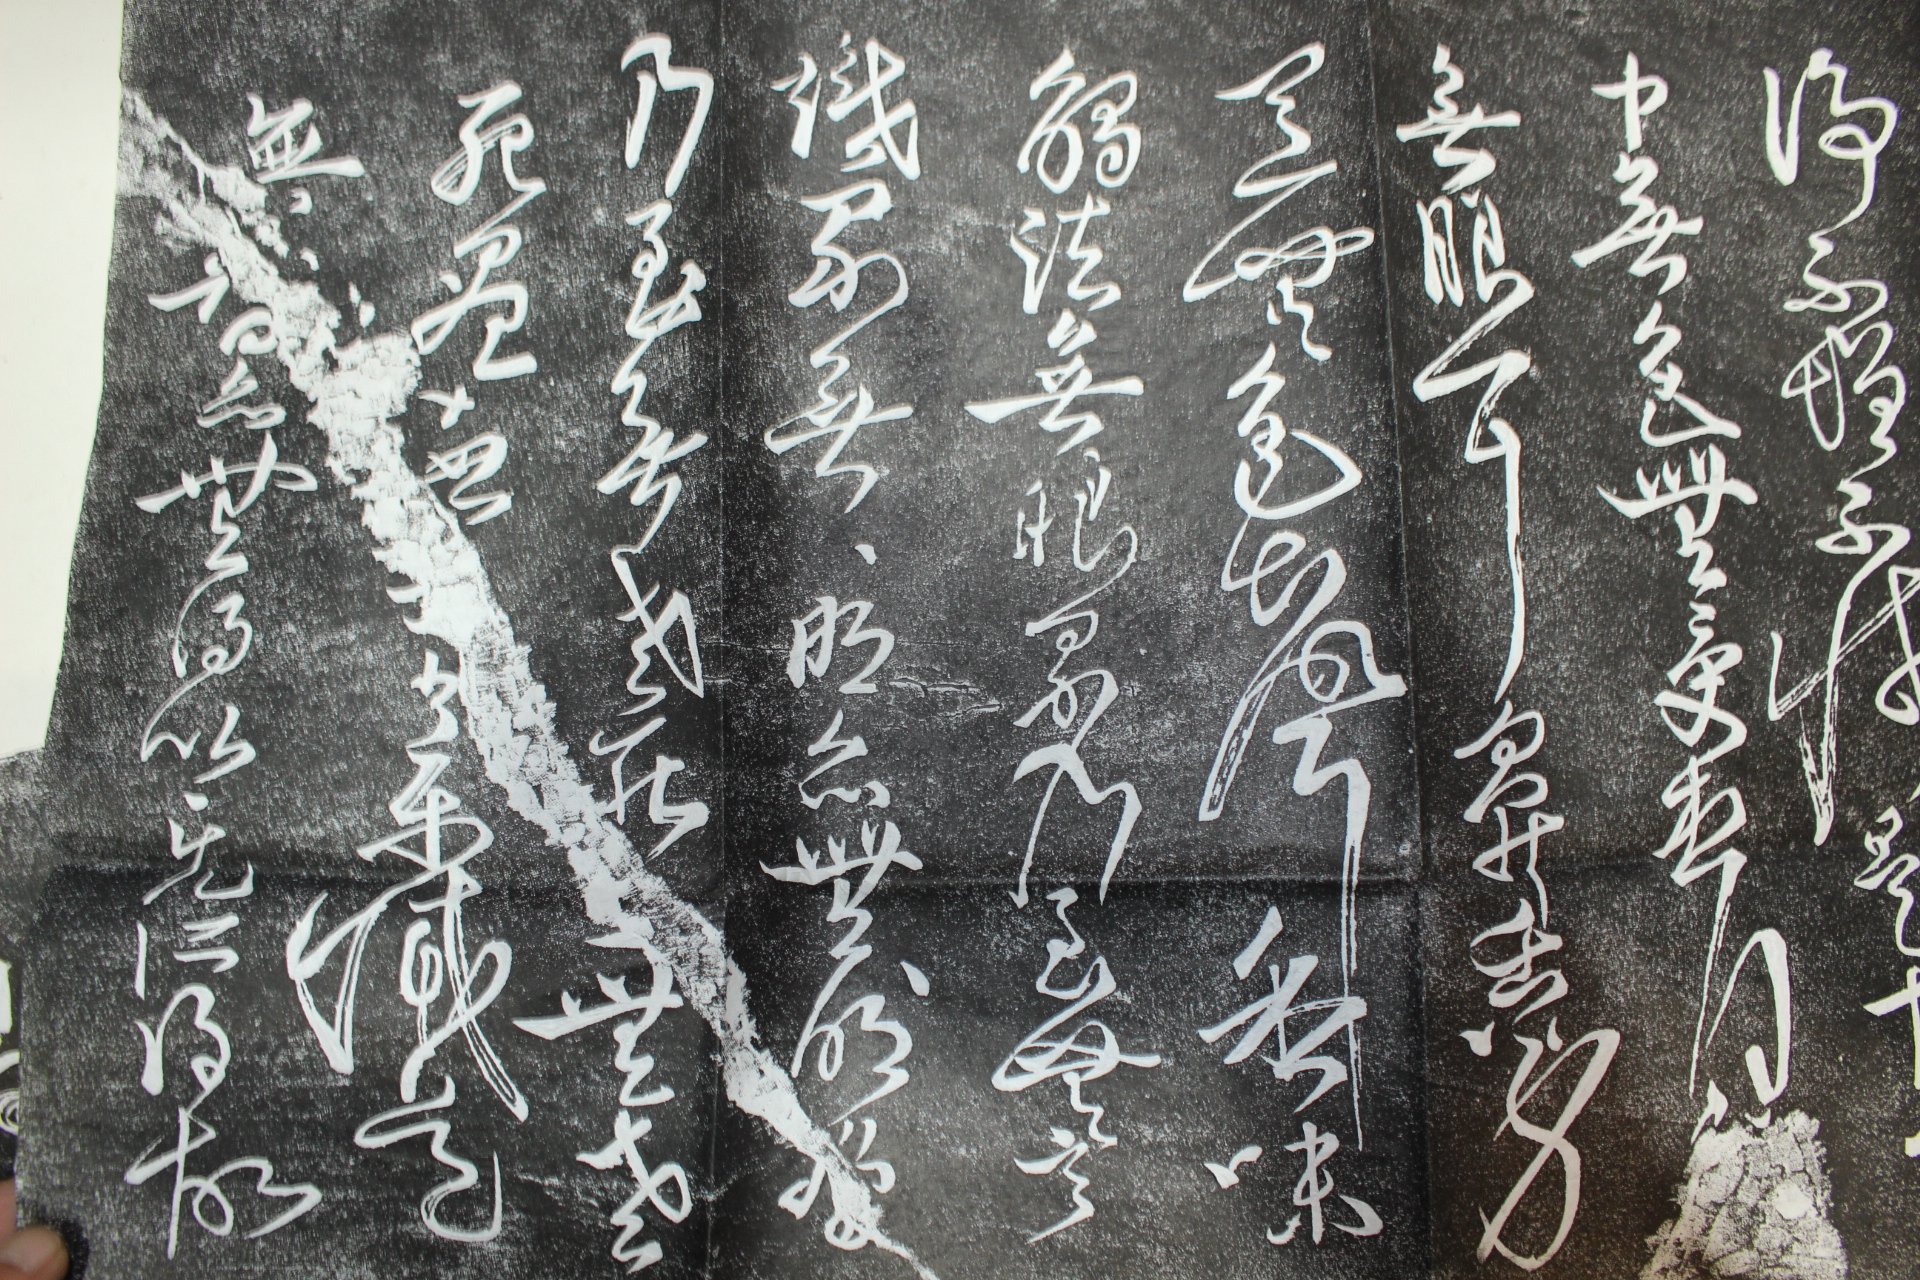 淨不增不減是
中無色無受想行
無眼耳鼻舌身
意無色聲香味
觸法無眼界乃至無意
識界無、明亦無無明盡
乃至無老死亦無老
死盡無苦集滅道
無智亦無得以無所得故